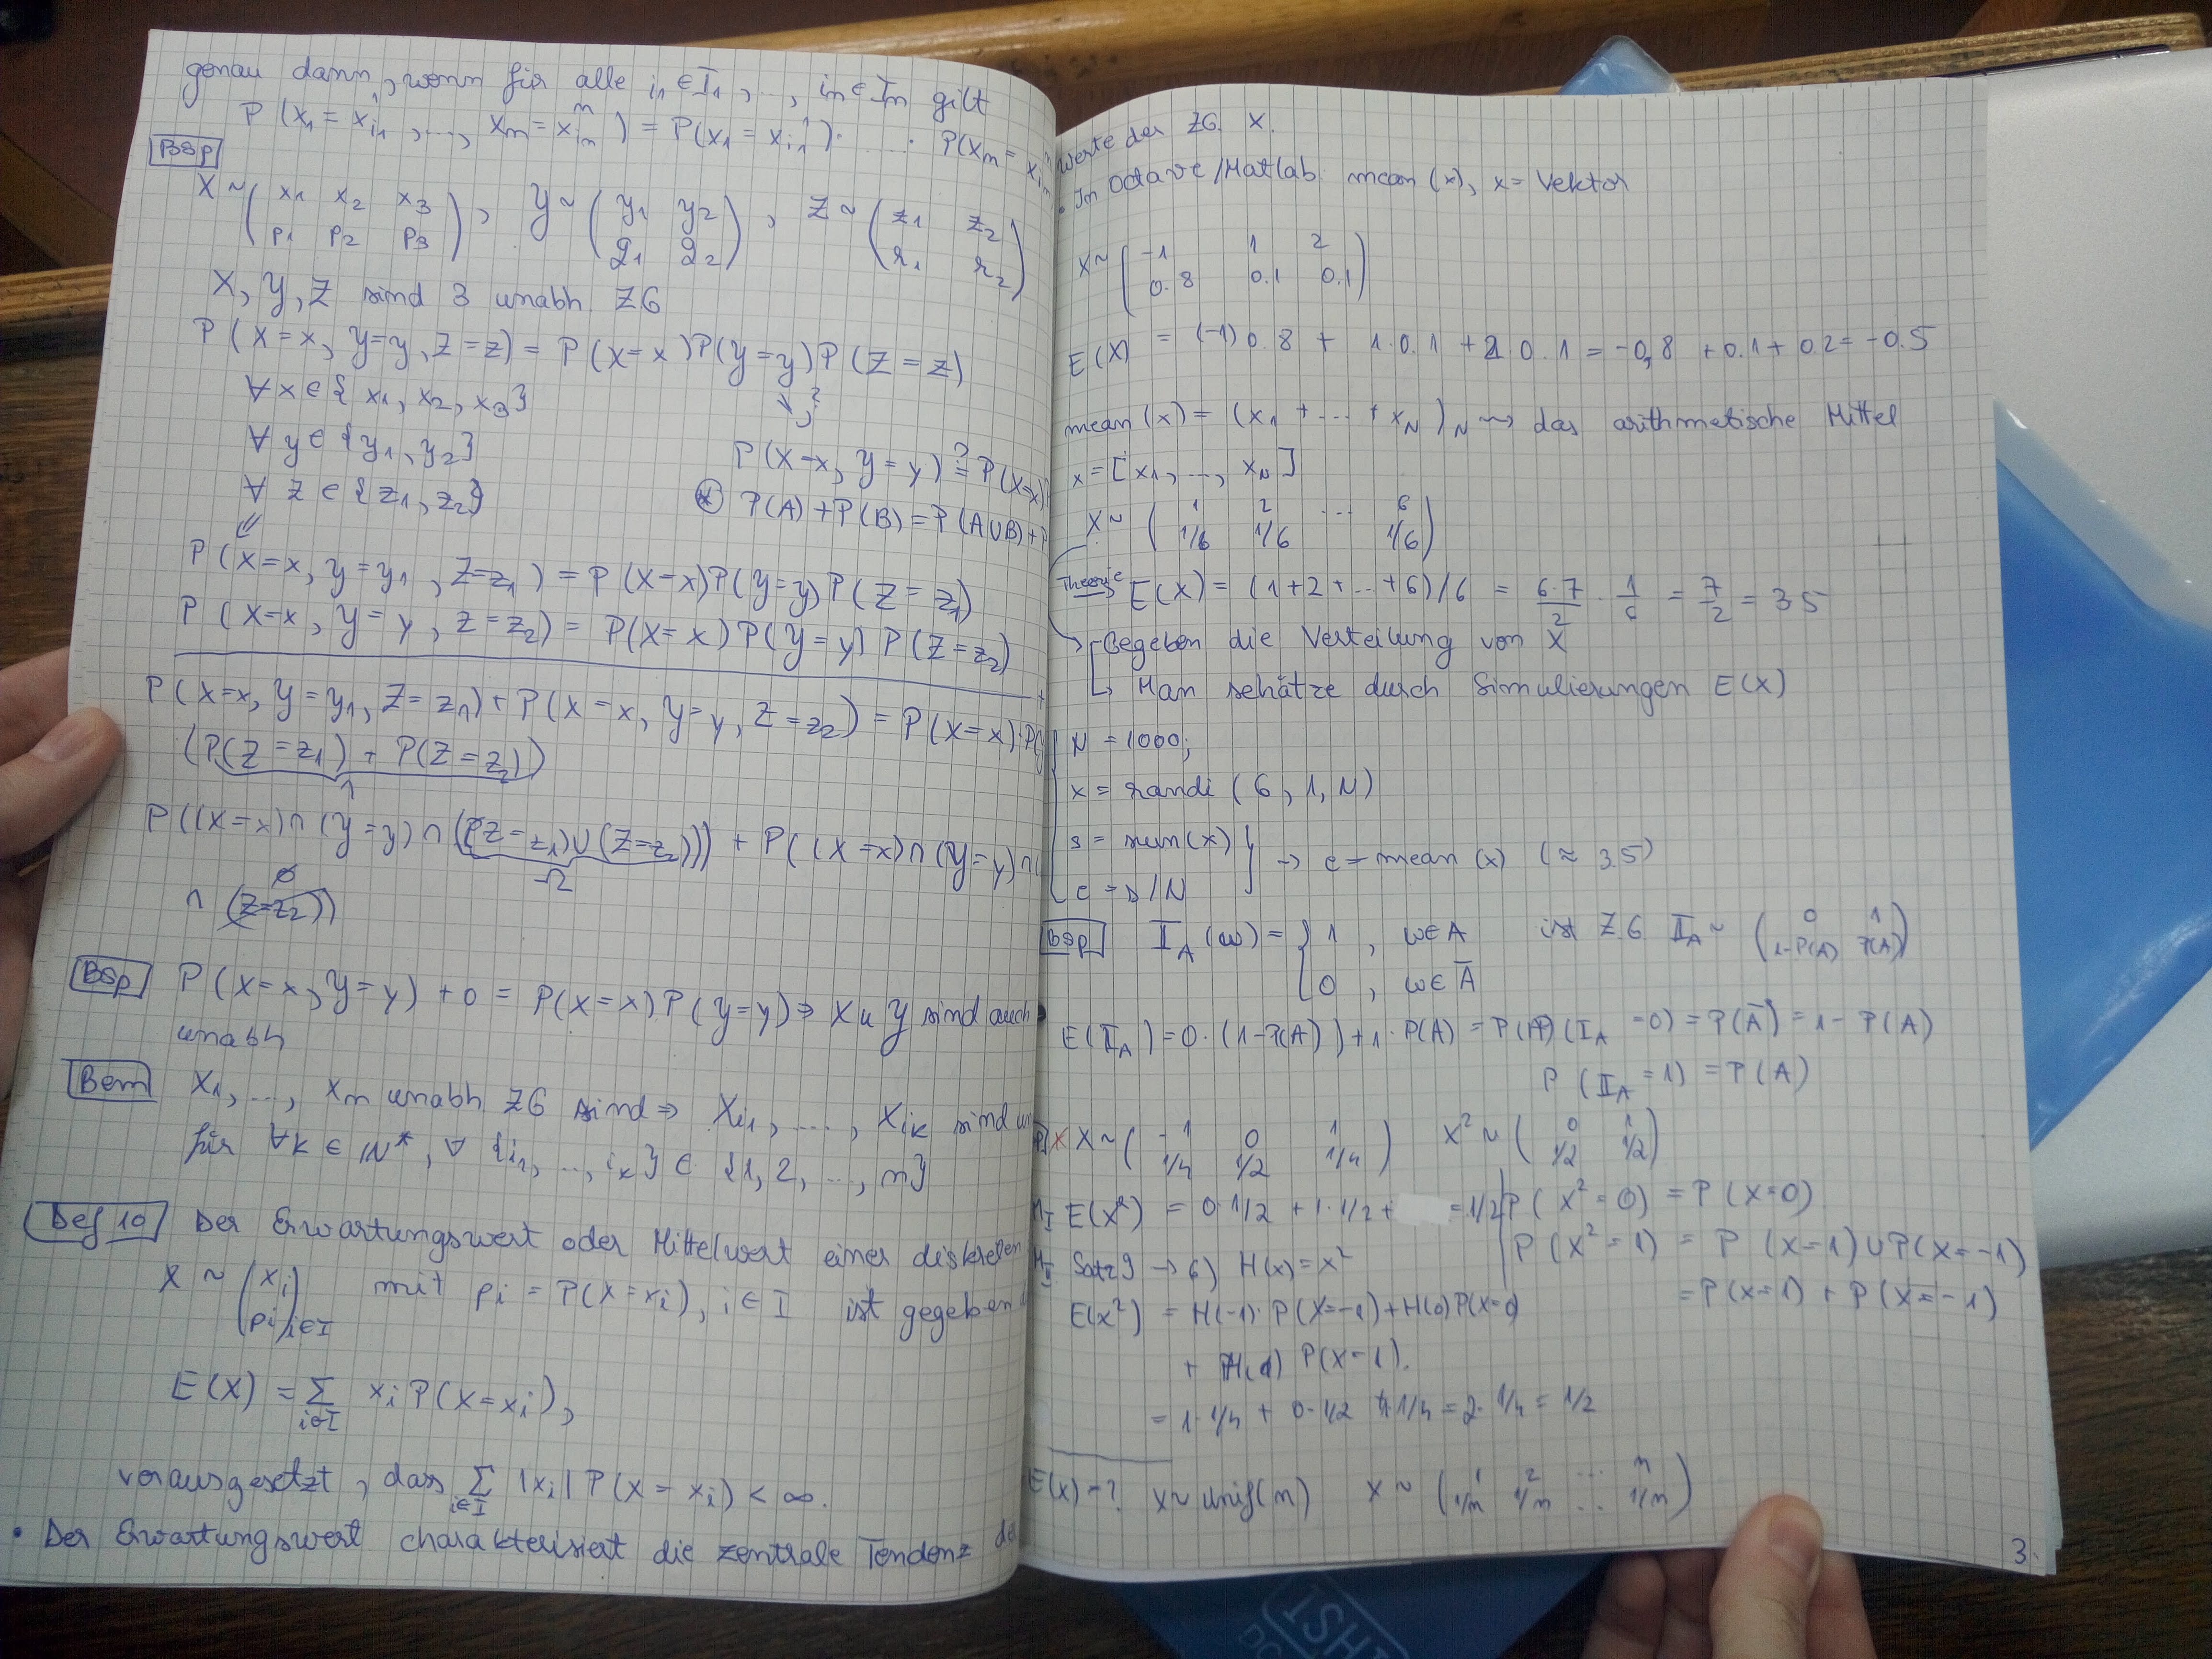 genau dann, wenn für alle i₁∈I₁, ..., iₙ∈Iₙ gilt
P(X₁ = x¹ᵢ₁, ..., Xₙ = xⁿᵢₙ) = P(X₁ = x¹ᵢ₁)· ... · P(Xₙ = xⁿᵢₙ
Bsp
X ~ (x₁ x₂ x₃ / p₁ p₂ p₃), Y ~ (y₁ y₂ / q₁ q₂), Z ~ (z₁ z₂ / r₁ r₂)
X, Y, Z sind 3 unabh. ZG
P(X=x, Y=y, Z=z) = P(X=x)P(Y=y)P(Z=z)
∀x∈{x₁, x₂, x₃}
∀y∈{y₁, y₂}
P(X=x, Y=y) ?= P(X=x)
∀ z ∈ {z₁, z₂}
⊛ P(A)+P(B)=P(A∪B)+P
⇙
P(X=x, Y=y₁, Z=z₁) = P(X=x)P(Y=y)P(Z=z₁)
P(X=x, Y=y, Z=z₂) = P(X=x)P(Y=y)P(Z=z₂)
+
P(X=x, Y=y₁, Z=z₁)+P(X=x, Y=y, Z=z₂) = P(X=x)·P(
(P(Z=z₁) + P(Z=z₂))
1
P((X=x)∩(Y=y)∩((Z=z₁)∪(Z=z₂))) + P((X=x)∩(Y=y)∩
Ω
∅
∩ (Z=z₂))
Bsp P(X=x, Y=y) + 0 = P(X=x)·P(Y=y) ⇒ X u Y sind auch
unabh
Bem X₁, ..., Xₙ unabh ZG sind ⇒ Xᵢ₁, ..., Xᵢₖ sind un
für ∀k ∈ ℕ*, ∀ {i₁, ..., iₖ} ⊂ {1, 2, ..., n}
Def 10 Der Erwartungswert oder Mittelwert einer diskreten
X ~ (xᵢ / pᵢ)ᵢ∈I mit pᵢ = P(X=xᵢ), i∈I ist gegeben
E(X) = Σᵢ∈I xᵢ P(X=xᵢ),
vorausgesetzt, dass Σᵢ∈I |xᵢ| P(X=xᵢ) < ∞.
• Der Erwartungswert charakterisiert die zentrale Tendenz der
Werte der ZG X.
• In Octave/Matlab mean(x), x = Vektor
X ~ (-1 1 2 / 0.8 0.1 0.1)
E(X) = (-1)0.8 + 1·0.1 + 2·0.1 = -0,8 + 0.1 + 0.2 = -0.5
mean(x) = (x₁ + ... + x_N)_N ⇝ das arithmetische Mittel
x = [x₁, ..., x_N]
X ~ (1 2 ... 6 / 1/6 1/6 1/6)
Theorie E(X) = (1+2+...+6)/6 = 6·7/2 · 1/6 = 7/2 = 3.5
Gegeben die Verteilung von X
↳ Man schätze durch Simulierungen E(X)
N = 1000;
x = randi(6, 1, N)
s = sum(x)
→ e = mean(x) (≈ 3.5)
e = s/N
Bsp I_A(ω) = { 1, ω∈A ist ZG I_A ~ (0 1 / 1-P(A) P(A))
0, ω∈Ā
E(I_A) = 0·(1-P(A)) + 1·P(A) = P(A) (I_A = 0) = P(Ā) = 1 - P(A)
P(I_A = 1) = P(A)
X ~ (-1 0 1 / 1/4 1/2 1/4) X² ~ (0 1 / 1/2 1/2)
M_I E(X²) = 0·1/2 + 1·1/2 + = 1/2
P(X² = 0) = P(X=0)
P(X² = 1) = P(X=1)∪P(X=-1)
= P(X=1) + P(X=-1)
M_II Satz 9 → 6) H(x) = x²
E(X²) = H(-1)·P(X=-1) + H(0)P(X=0)
+ H(1) P(X=1).
= 1·1/4 + 0·1/2 + 1·1/4 = 2·1/4 = 1/2
E(X) = ? X ~ Unif(n) X ~ (1 2 ... n / 1/n 1/n ... 1/n)
3.
ISHI